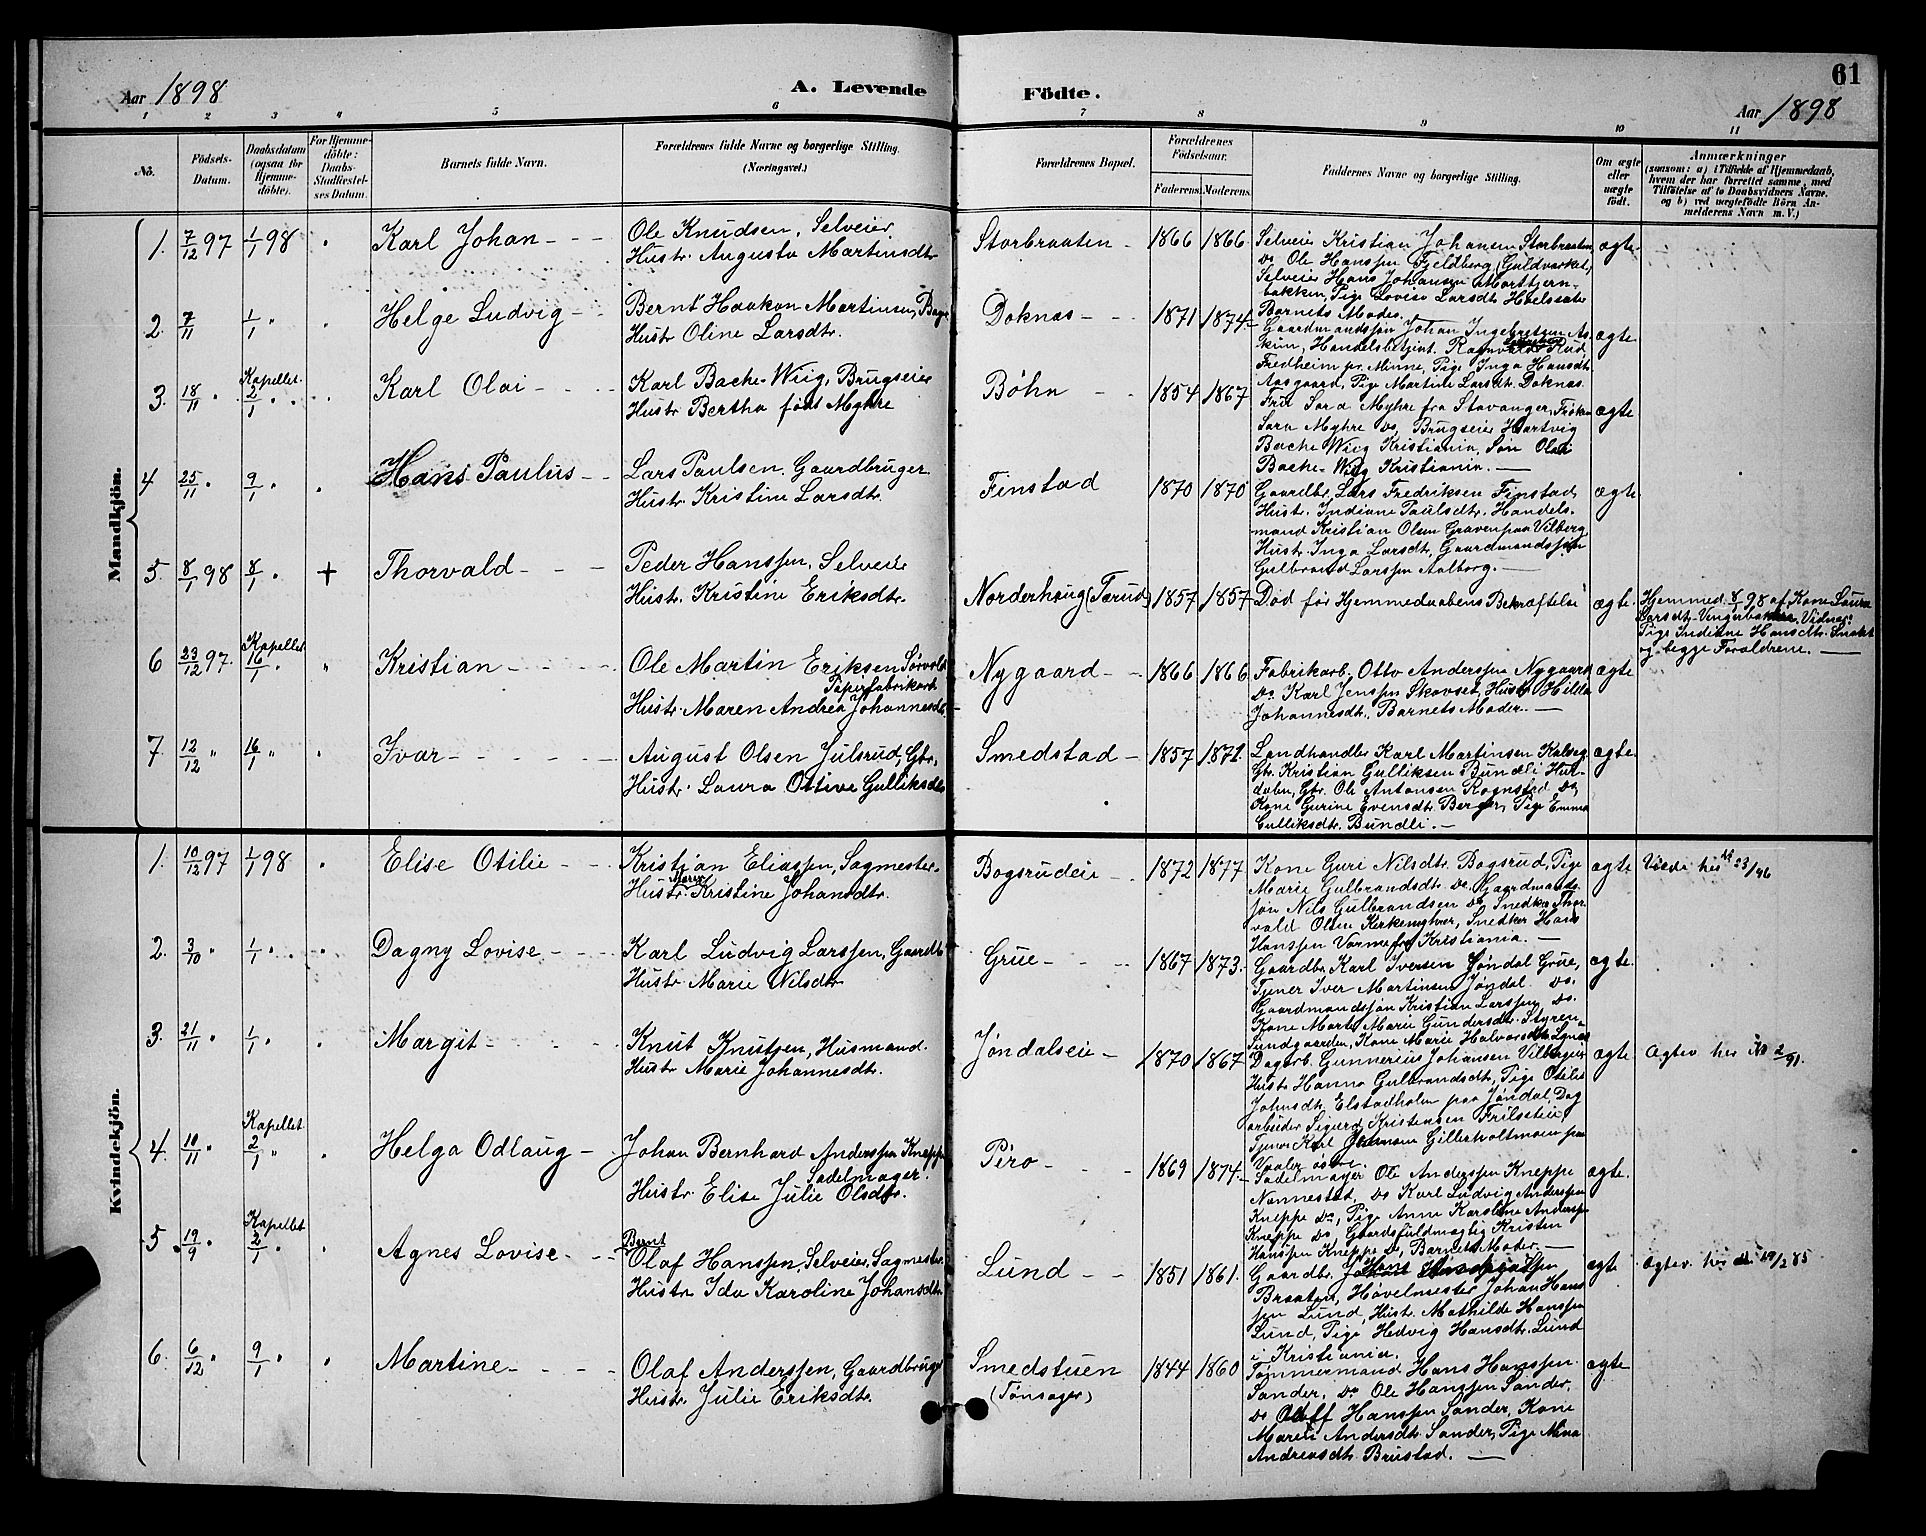 61
Aar 1898
A. Levende
Födte.
Aar 1898
1 2 3 4 5 6 7 8 9 10 11
No.
Födsels-
Datum.
Daabsdatum
(ogsaa for
Hjemme-
döbte).
For Hjemme-
döbte:
Daabs-
Stadfæstel-
ses Datum.
Barnets fulde Navn.
Forældrenes fulde Navne og borgerlige Stilling.
(Næringsvei.)
Forældrenes Bopæl.
Forældrenes
Födselsaar.
Faderens. Moderens.
Faddernes Navne og borgerlige Stilling.
Om ægte
eller
uægte
født.
Anmærkninger
(saasom: a) i Tilfælde af Hjemmedaab,
hvem der har forrettet samme, med
Tilföielse af to Daabsvidners Navne.
og b) ved uægtefödte Börn An-
melderens Navn m. V.)
Mandkjön.
1. 7/12 97 1/1 98 Karl Johan
Ole Knudsen, Selveier
Hustr. Augusta Martinsdtr.
Storbraaten 1866 1866
Selveier Kristian Johansen Storbraaten
Do Ole Hanssen Fjeldberg (Guldverket)
Selveier Hans Johansen Morttjern-
bakken, Pige Lovise Larsdtr.
Barnets Moder.
ægte
2. 7/11 1/1 Helge Ludvig
Bernt Haakon Martinsen,
Hustr Oline Larsdtr.
Doknæs 1871 1874
Gaardmandssøn Johan Ingebretsen As-
kim, Handelsbetjent Ragnvald Rud
Fredheim pr. Minne, Pige Inga Hansdtr.
Aasgaard, Pige Martine Larsdtr. Doknæs.
ægte
3. 18/11 Kapellet 2/1 Karl Olai
Karl Bache-Wiig, Brugseier
Hustr Bertha født Myhre
Bøhn 1854 1867
Fru Sara Myhre fra Stavanger, Frøken
Sara Myhre Do, Brugseier Hartvig
Bache Wiig Kristiania, Søn Olai
Bache-Wiig Kristiania.
ægte
4 25/11 9/1 Hans Paulus
Lars Paulsen, Gaardbruger.
Hustr Kristine Larsdtr.
Finstad 1870 1870
Gaardbr. Lars Fredriksen Finstad,
Hustr. Indiane Paulsdtr. Handels-
mand Kristian Olsen Graven paa Vilberg
Hustr. Inga Larsdtr, Gaardmandssøn
Gulbrand Larssen Aalborg.
ægte
5. 8/1 98 8/1 + Thorvald
Peder Hanssen, Selveier
Hustr. Kristine Eriksdtr.
Norderhaug (Tærud) 1857 1857
Død før Hjemmedaabens Bekræftelse
ægte.
Hjemmed. 8/1 98 af Kone Laura
Larsdtr. Vidner:
Pige Indiane Hansdtr.
og begge Forældrene.
6 23/12 97. Kapellet 16/1 Kristian
Ole Martin Eriksen Sørvold
Papirfabrikarb.
Hustr. Maren Andrea Johannesdtr.
Nygaard 1866 1866
Fabrikarb. Otto Anderssen Nygaard
Do Karl Jenssen Skovset, Hustr Hilda
Johannesdtr, Barnets Moder.
ægte
7 12/12 16/1 Ivar
August Olsen Julsrud, Gbr.
Hustr. Laura Ottive Gulliksdtr
Smedstad 1857 1871.
Landhandler Karl Martinsen
Gbr. Kristian Gulliksen Bundli Hur-
dalen, Gbr. Ole Antonsen Rognstad Do
Kone Gurine Evensdtr. Berger, Pige Emma
Gulliksdtr. Bundli.
ægte
Kvindekjön.
1. 10/12 97 1/1 98 Elise Otilie
Kristian Eliassen, Sagmester.
Hustr. Maren Kristine Johansdtr.
Bogsrudeie 1872 1877
Kone Guri Nilsdtr. Bogsrud, Pige
Marie Gulbrandsdtr. Do. Gaardmands-
søn Nils Gulbrandsen Do Snedker Thor-
vald Olsen Kirkemyhren, Snedker Hans
Hanssen Vorme fra Kristiania.
ægte
Viede her 23/ 46
2. 3/10 1/1 Dagny Lovise
Karl Ludvig Larssen, Gaardbr
Hustr Marie Nilsdtr
Grue 1867 1873.
Gaardbr. Karl Iversen Jøndal Grue,
Tjener Iver Martinsen Jøndal Do.
Gaardmandssøn Kristian Larssen, Do.
Kone Marte Marie Gundersdtr. Styren-
Sundgaarden, Kone Marie Halvorsdtr.
ægte.
3. 21/11 1/1 Margit
Knut Knutsen, Husmand.
Hustr Marie Johannesdtr.
Jøndalseie 1870 1867
Dagarb. Gunnerius Johansen Vilbergeie
Hustr Hanna Gulbrandsdtr, Pige Otilie
Johnsdtr, Elstadholm paa Jøndal, Dag
arbeider Sigurd Kristensen Frilseteie,
Tjener Karl Gillerholtmoen paa
Vaaler østre.
ægte
ægtev. her 2/ 91.
4. 10/11 Kapellet 2/1 Helga Odlaug
Johan Bernhard Anderssen Kneppe
Sadelmager.
Hustr. Elise Julie Olsdtr.
Piro 1869 1874
Sadelmager Ole Anderssen Kneppe
Nannestad, Do Karl Ludvig Anderssen
Kneppe Do, Pige Anne Karoline Anderss.
Kneppe Do Gaardsfuldmægtig Kristen
Hanssen Kneppe Do, Barnets Moder.
ægte.
5. 19/9 Kapellet 2/1 Agnes Lovise
Bernt
Olaf Hanssen, Selveier, Sagmester
Hustr Ida Karoline Johansdtr
Lund 1851 1861.
Gaardbr.
Braaten, Høvelmester Johan Hans
sen Lund, Hustr. Mathilde Hanssen
Lund, Pige Hedvig Hansdtr. Lund
i Kristiania.
ægte
ægtev. her 19/2 85
6. 6/12 9/1 Martine
Olaf Anderssen, Gaardbruger
Hustr Julie Eriksdtr.
Smedstuen
(Tønsager)
1844 1860
Tømmermand Hans Hanssen
Sander, Do Ole Hanssen Sander,
Do Oluff Hanssen Sander, Kone
Maren Andersdtr Sander, Pige Mina
Andreasdtr Brustad.
ægte